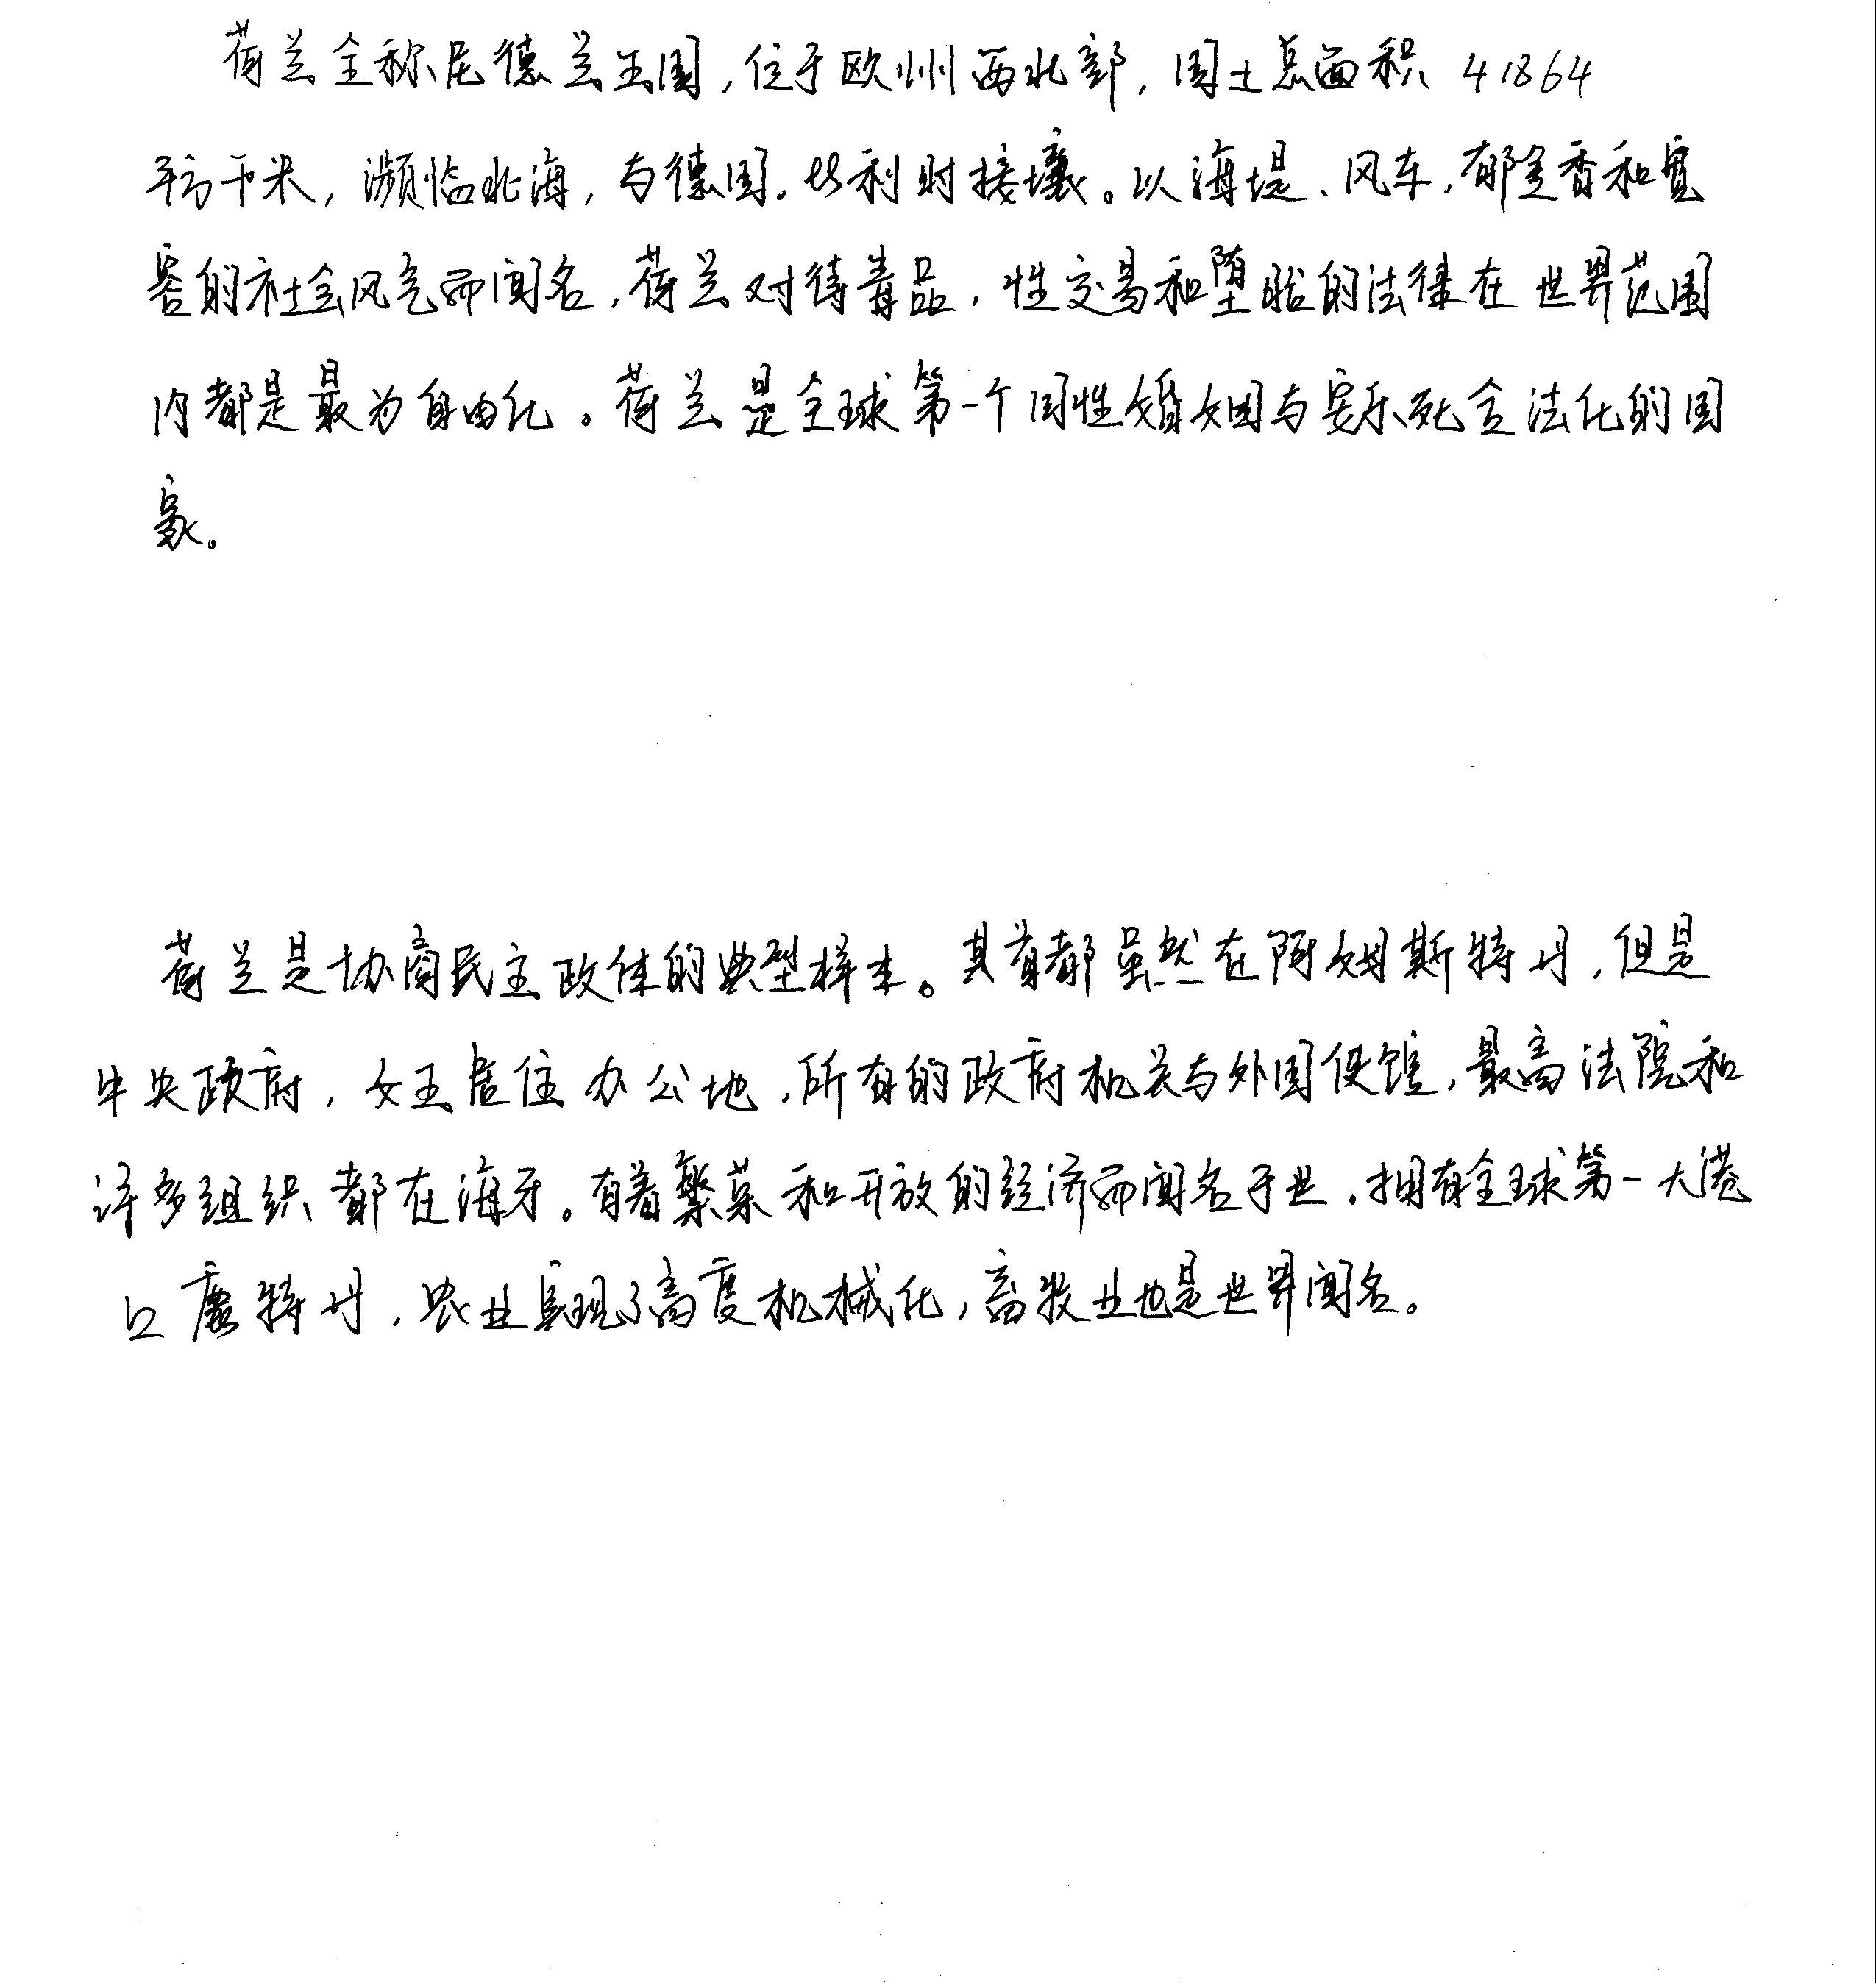 荷兰全称尼德兰王国,位于欧洲西北部,国土总面积 41864
平方千米,濒临北海,与德国、比利时接壤。以海堤、风车,郁金香和宽
容的社会风气而闻名,荷兰对待毒品,性交易和堕胎的法律在世界范围
内都是最为自由化。荷兰是全球第一个同性婚姻与安乐死合法化的国
家。
荷兰是协商民主政体的典型样本。其首都虽然在阿姆斯特丹,但是
中央政府,女王居住办公地,所有的政府机关与外国使馆,最高法院和
许多组织都在海牙。有着繁荣和开放的经济而闻名于世,拥有全球第一大港
口鹿特丹,农业实现了高度机械化,畜牧业也是世界闻名。